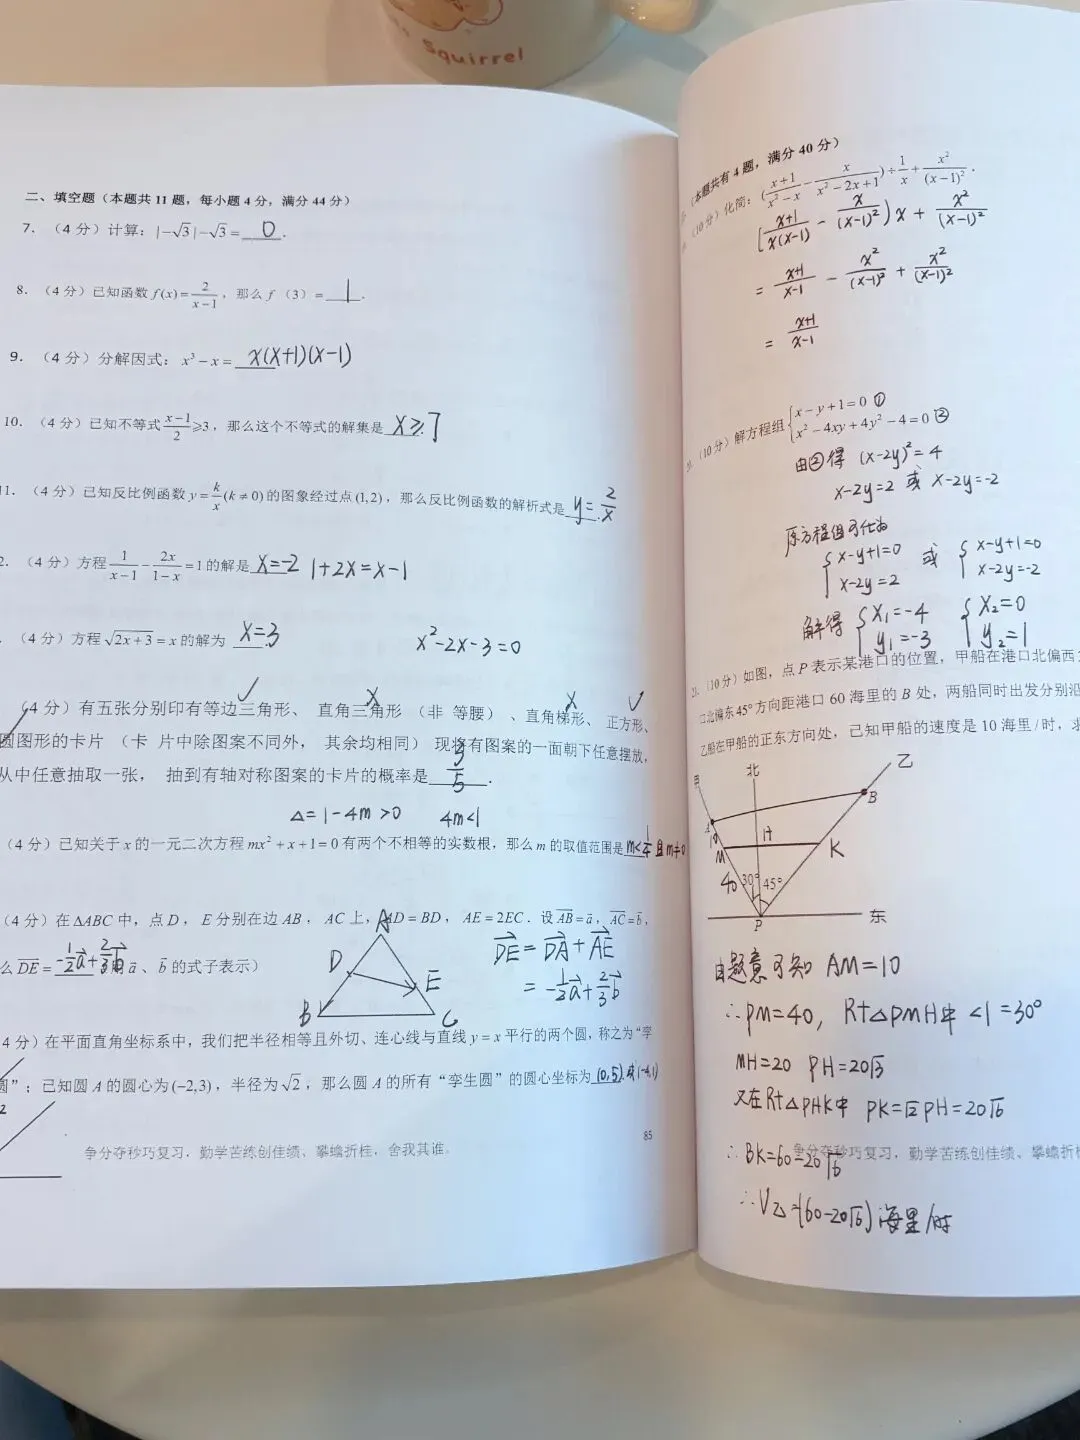 Squirrel
二、填空题（本题共 11 题，每小题 4 分，满分 44 分）
7. （4 分）计算：|−√3|−√3 = 0 .
8. （4 分）已知函数 f(x)=2/(x−1)，那么 f （3）= 1 .
9. （4 分）分解因式：x³−x= x(x+1)(x−1)
10. （4 分）已知不等式 (x−1)/2 ≥3，那么这个不等式的解集是 x≥7
11. （4 分）已知反比例函数 y=k/x (k≠0) 的图象经过点(1,2)，那么反比例函数的解析式是 y=2/x .
2. （4 分）方程 1/(x−1) − 2x/(1−x) =1 的解是 x=−2 1+2x=x−1
. （4 分）方程 √(2x+3) = x 的解为 x=3 x²−2x−3=0
（4 分）有五张分别印有等边三角形、 直角三角形 （非 等腰） 、直角梯形、 正方形、
圆图形的卡片 （卡 片中除图案不同外， 其余均相同） 现将有图案的一面朝下任意摆放，
从中任意抽取一张， 抽到有轴对称图案的卡片的概率是 3/5 .
△=1−4m>0 4m<1
（4 分）已知关于 x 的一元二次方程 mx²+x+1=0 有两个不相等的实数根，那么 m 的取值范围是 m<1/4 且 m≠0
（4 分）在 ΔABC 中，点 D，E 分别在边 AB，AC 上，AD=BD，AE=2EC．设 AB=a，AC=b，
么 DE= −1/2 a+2/3 b 用 a、b 的式子表示）
A
D
E
B
C
DE = DA + AE
= −1/2 a + 2/3 b
4 分）在平面直角坐标系中，我们把半径相等且外切、连心线与直线 y=x 平行的两个圆，称之为“孪
圆”；已知圆 A 的圆心为(−2,3)，半径为√2，那么圆 A 的所有“孪生圆”的圆心坐标为 (0,5) 或 (−4,1)
2
85
争分夺秒巧复习，勤学苦练创佳绩、攀蟾折桂，舍我其谁。
（本题共有 4 题，满分 40 分）
（10 分）化简：((x+1)/(x²−x) − x/(x²−2x+1)) ÷ 1/x + x²/(x−1)² .
[(x+1)/(x(x−1)) − x/(x−1)²) x + x²/(x−1)²
= (x+1)/(x−1) − x²/(x−1)² + x²/(x−1)²
= (x+1)/(x−1)
20. （10 分）解方程组 {x−y+1=0 ①
x²−4xy+4y²−4=0 ②
由②得 (x−2y)²=4
x−2y=2 或 x−2y=−2
原方程组可化为
{x−y+1=0 或 {x−y+1=0
x−2y=2 x−2y=−2
解得 {x₁=−4 {x₂=0
y₁=−3 y₂=1
21. （10 分）如图，点 P 表示某港口的位置，甲船在港口北偏西
口北偏东 45°方向距港口 60 海里的 B 处，两船同时出发分别沿
乙船在甲船的正东方向处，已知甲船的速度是 10 海里/时，求
甲
北
乙
A
B
10
H
M
K
40
30°
45°
P
东
由题意可知 AM=10
∴PM=40，Rt△PMH中 <1=30°
MH=20 PH=20√3
又在Rt△PHK中 PK=√2PH=20√6
∴BK=60−20√6
争分夺秒巧复习，勤学苦练创佳绩、攀蟾折
∴V乙=(60−20√6)海里/时